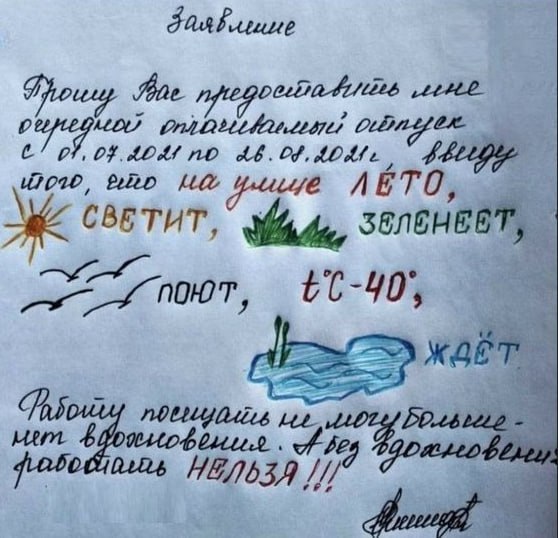 Заявление
Прошу Вас предоставить мне
очередной оплачиваемый отпуск
с 01.07.2021 по 26.08.2021г, ввиду
того, что на улице ЛЕТО,
СВЕТИТ, ЗЕЛЕНЕЕТ,
ПОЮТ, t°C-40°,
ЖДЁТ
Работу посещать не могу больше-
нет вдохновения. А без вдохновения
работать НЕЛЬЗЯ!!!